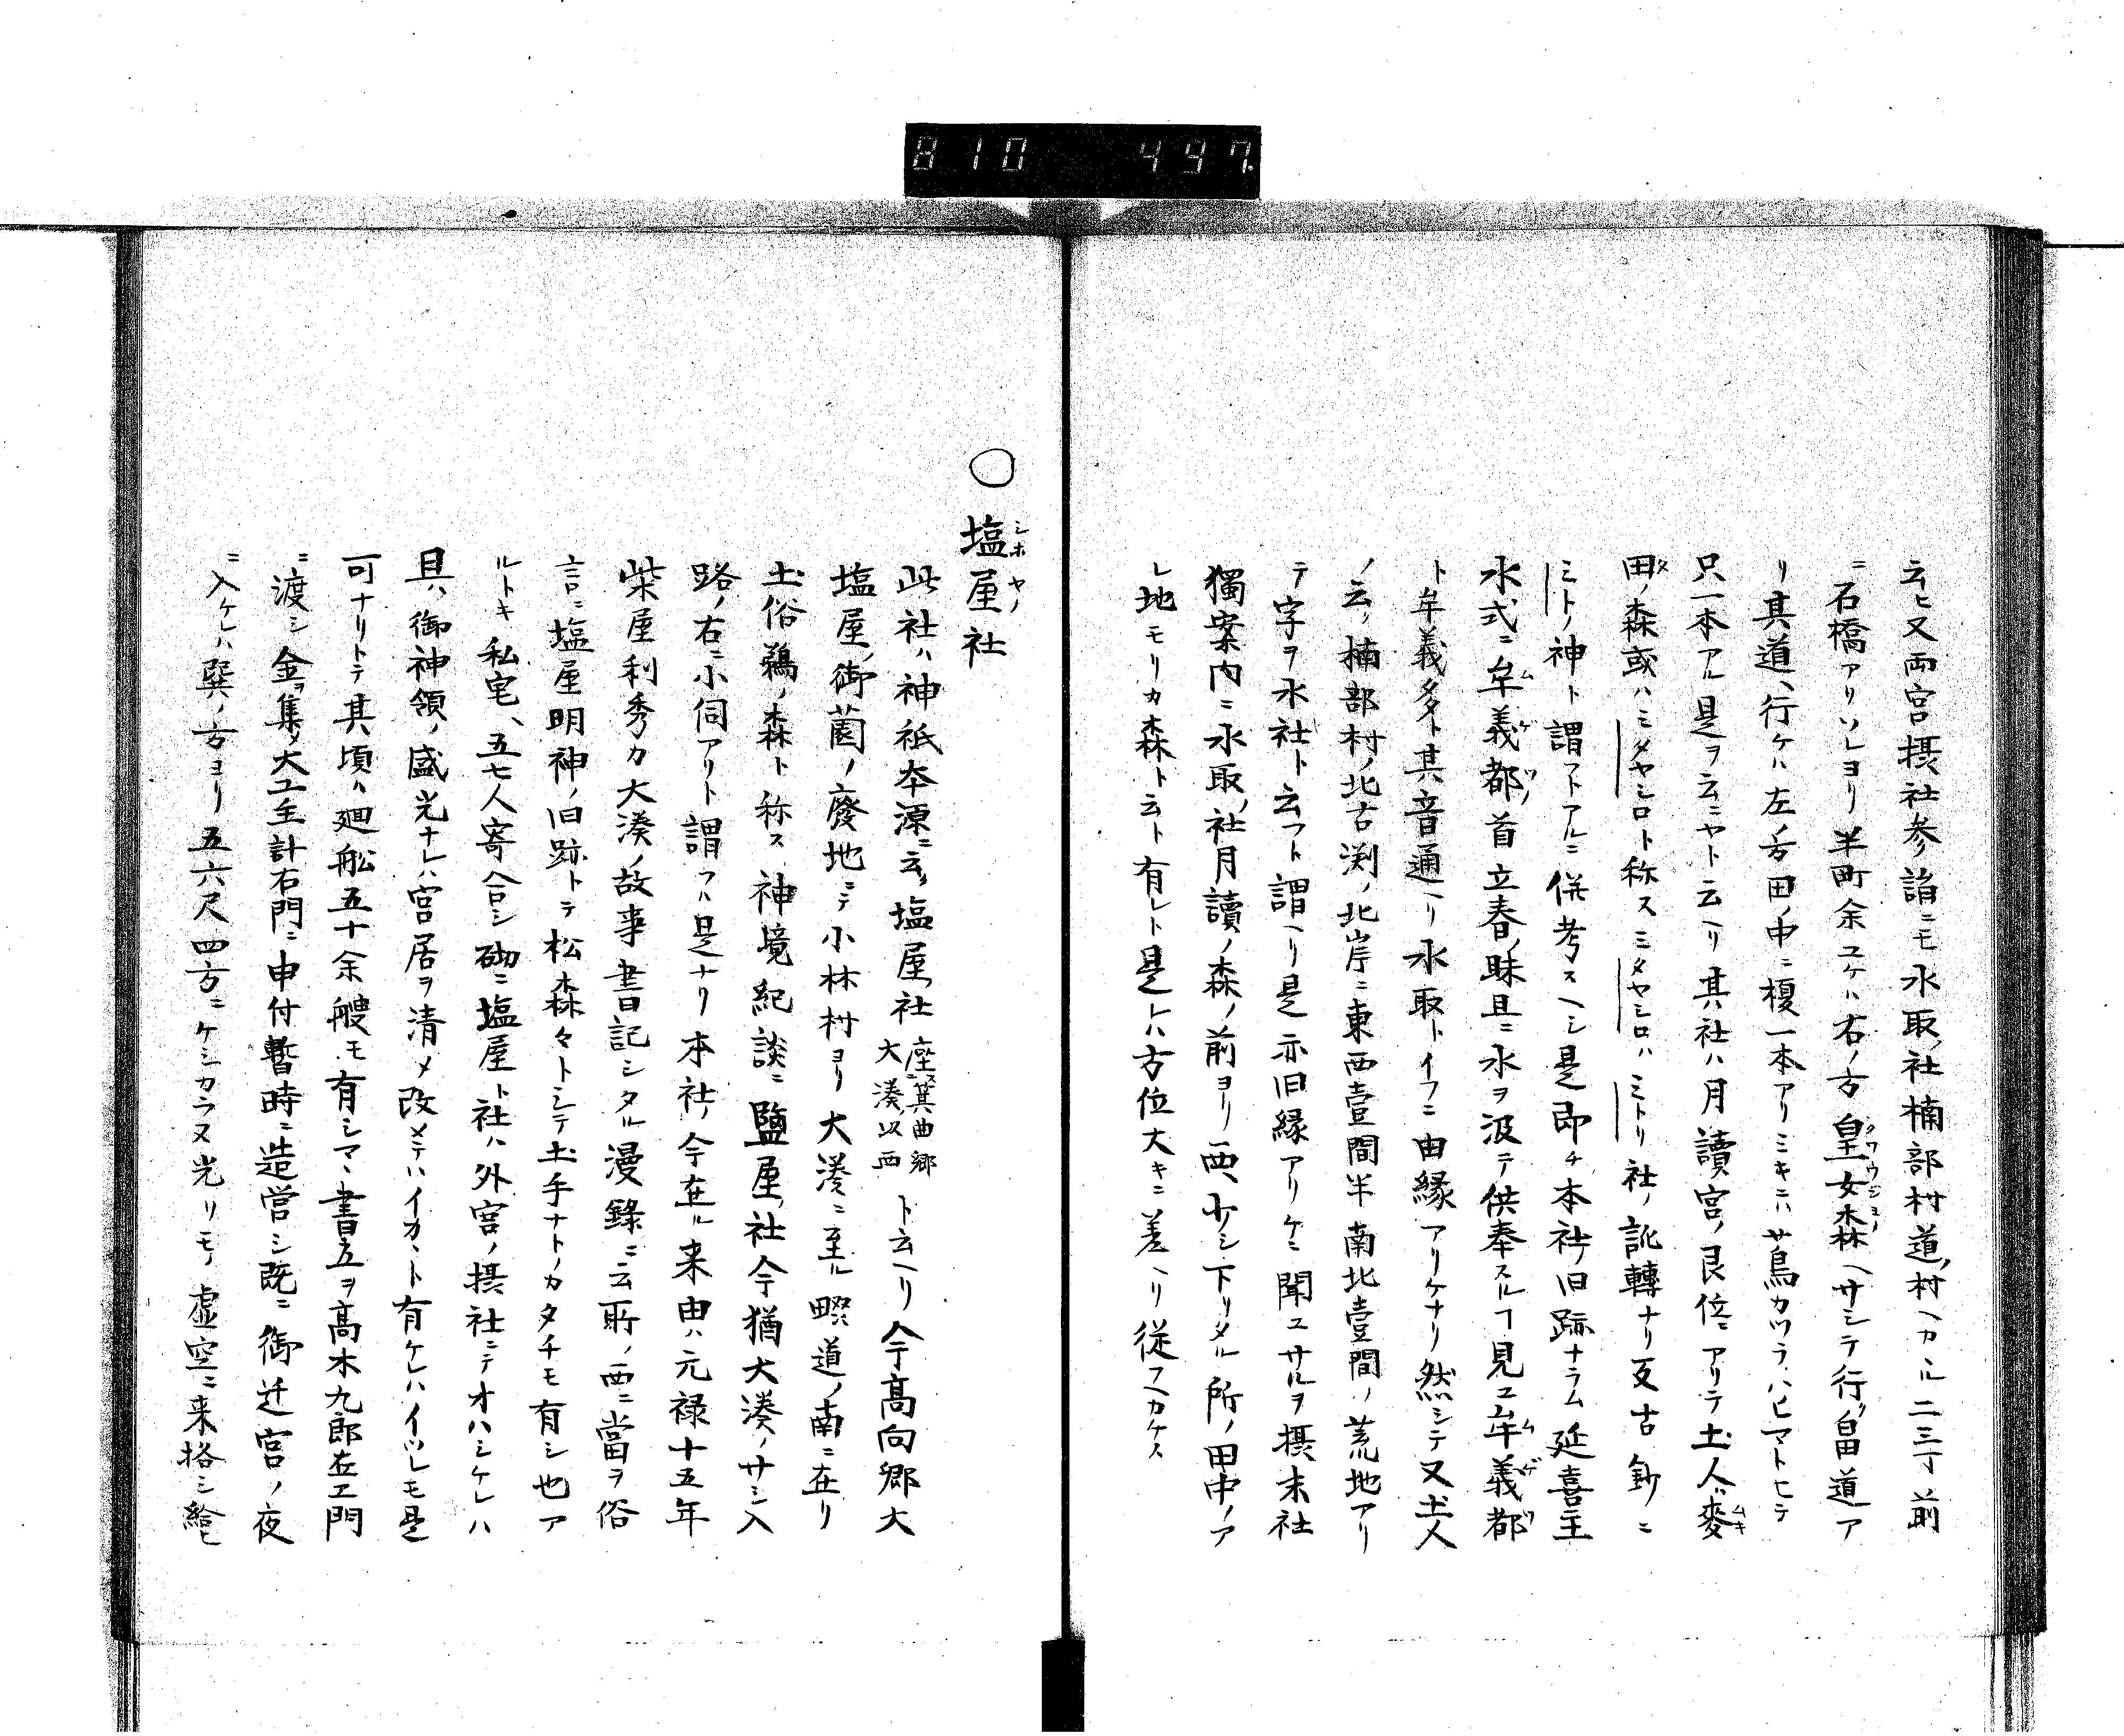 810 497
云ヒ又両宮摂社参詣ニモ水取ノ社楠部村道ノ村ヘカヽル二三丁前
ニ石橋アリソレヨリ半町余ユケハ右ノ方皇女森ヘサシテ行ク畠道ア
リ其道ヽ行ケハ左ノ方田ノ中ニ榎一本アリミキニハサ鳥カツラハヒマトヒテ
只一本アル是ヲ云ニヤト云ヘリ其社ハ月讀宮ノ艮位ニアリテ土人麥
田ノ森或ハミタヤシロト称スミタヤシロハミトリ社ノ訛轉ナリ又古鈔ニ
ミトノ神ト謂フトアルニ併考スヘシ是即チ本社ノ旧跡ナラム延喜主
水式ニ牟義都ノ首立春ノ昧旦ニ水ヲ汲テ供奉スルヿ見ユ牟義都
ト牟義多ト其音通ヘリ水取トイフニ由縁アリケナリ然シテ又土人
ノ云ク楠部村ノ北古渕ノ北岸ニ東西壹間半南北壹間ノ荒地アリ
テ字ヲ水社ト云フト謂ヘリ是亦旧縁アリケニ聞ユサルヲ摂末社
獨案内ニ水取ノ社月讀ノ森ノ前ヨリ西少シ下リタル所ノ田中ノア
レ地モリカ森ト云ト有レト是レハ方位大キニ差ヘリ従フヘカラス
○塩屋社
此社ハ神祇本源ニ云ク塩屋ノ社座ス箕曲郷大湊ノ以西ト云ヘリ今高向郷大
塩屋ノ御薗ノ廢地ニテ小林村ヨリ大湊ニ至ル畷道ノ南ニ在リ
土俗鵜ノ森ト称ス神境紀談ニ鹽屋ノ社今猶大湊ノサシ入
路ノ右ニ小伺アリト謂フハ是ナリ本社ノ今在ル来由ハ元禄十五年
柴屋利秀カ大湊ノ故事書記シタル漫錄ニ云所ノ西ニ當ヲ俗
言ニ塩屋明神ノ旧跡トテ松森々トシテ土手ナトノカタチモ有シ也ア
ルトキ私宅ヽ五七人寄合シ砌ニ塩屋ト社ハ外宮ノ摂社ニテオハシケレハ
具ハ御神領ノ盛光ナレハ宮居ヲ清メ改メテハイカヽト有ケレハイツレモ是
可ナリトテ其頃ハ廻舩五十余艘モ有シマヽ書立ヲ高木九郎左エ門
ニ渡シ金ヲ集メ大工全計右門ニ申付暫時ニ造営シ既ニ御迁宮ノ夜
ニ入ケレハ巽ノ方ヨリ五六尺四方ニケシカラヌ光リモノ虚空ニ来格シ給ヒ